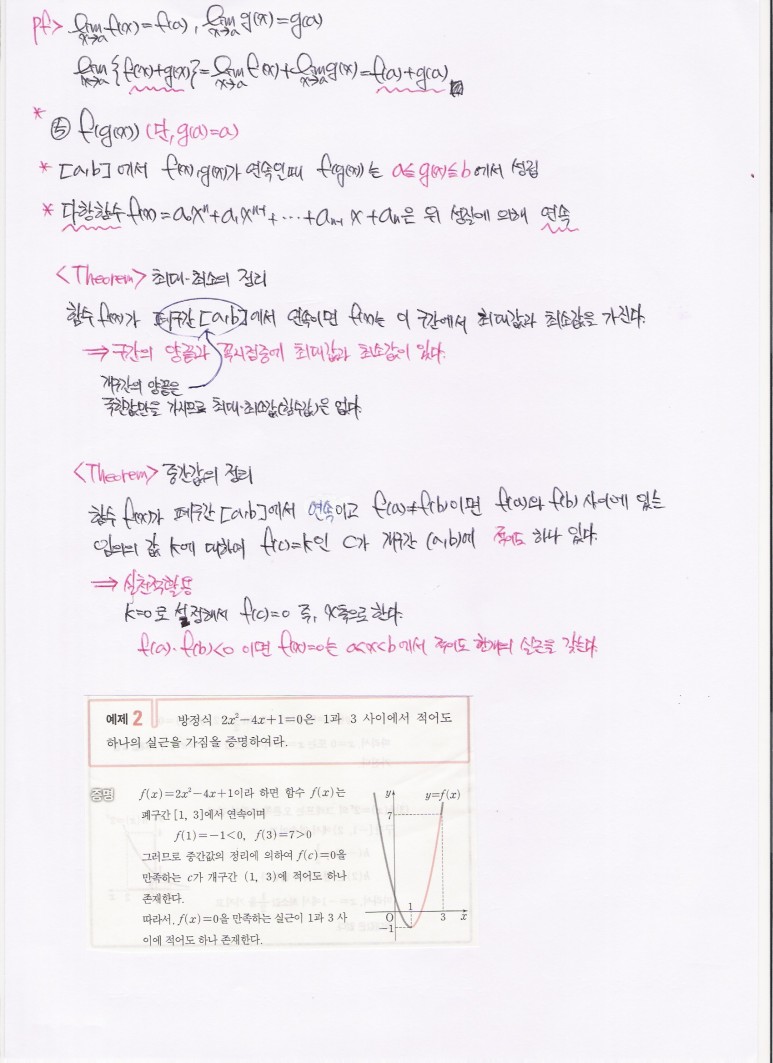 pf> lim x→a f(x)=f(a), lim x→a g(x)=g(a)
lim x→a {f(x)+g(x)}=lim x→a f(x)+lim x→a g(x)=f(a)+g(a)
*
⑤ f(g(x)) (단, g(a)=a)
* [a,b]에서 f(x), g(x)가 연속일때 f(g(x))는 a≦g(x)≦b에서 성립
* 다항함수 f(x)=a₀xⁿ+a₁xⁿ⁻¹+⋯+aₙ₋₁x+aₙ은 위 성질에 의해 연속
<Theorem> 최대·최소의 정리
함수 f(x)가 폐구간 [a,b]에서 연속이면 f(x)는 이 구간에서 최대값과 최소값을 가진다.
⇒ 구간의 양끝과 꼭지점중에 최대값과 최소값이 있다.
개구간의 양끝은
극한값만을 가지므로 최대·최소값(함수값)은 없다.
<Theorem> 중간값의 정리
함수 f(x)가 폐구간 [a,b]에서 연속이고 f(a)≠f(b)이면 f(a)와 f(b) 사이에 있는
임의의 값 k에 대하여 f(c)=k인 c가 개구간 (a,b)에 적어도 하나 있다.
⇒ 실천적활용
k=0로 설정해서 f(c)=0 즉, x축으로 한다.
f(a)·f(b)<0 이면 f(x)=0는 a<x<b에서 적어도 한개의 실근을 갖는다.
예제 2 방정식 2x²−4x+1=0은 1과 3 사이에서 적어도
하나의 실근을 가짐을 증명하여라.
증명 f(x)=2x²−4x+1이라 하면 함수 f(x)는
폐구간 [1, 3]에서 연속이며
f(1)=−1<0, f(3)=7>0
그러므로 중간값의 정리에 의하여 f(c)=0을
만족하는 c가 개구간 (1, 3)에 적어도 하나
존재한다.
따라서, f(x)=0을 만족하는 실근이 1과 3 사
이에 적어도 하나 존재한다.
y y=f(x)
7
1
O 3 x
−1